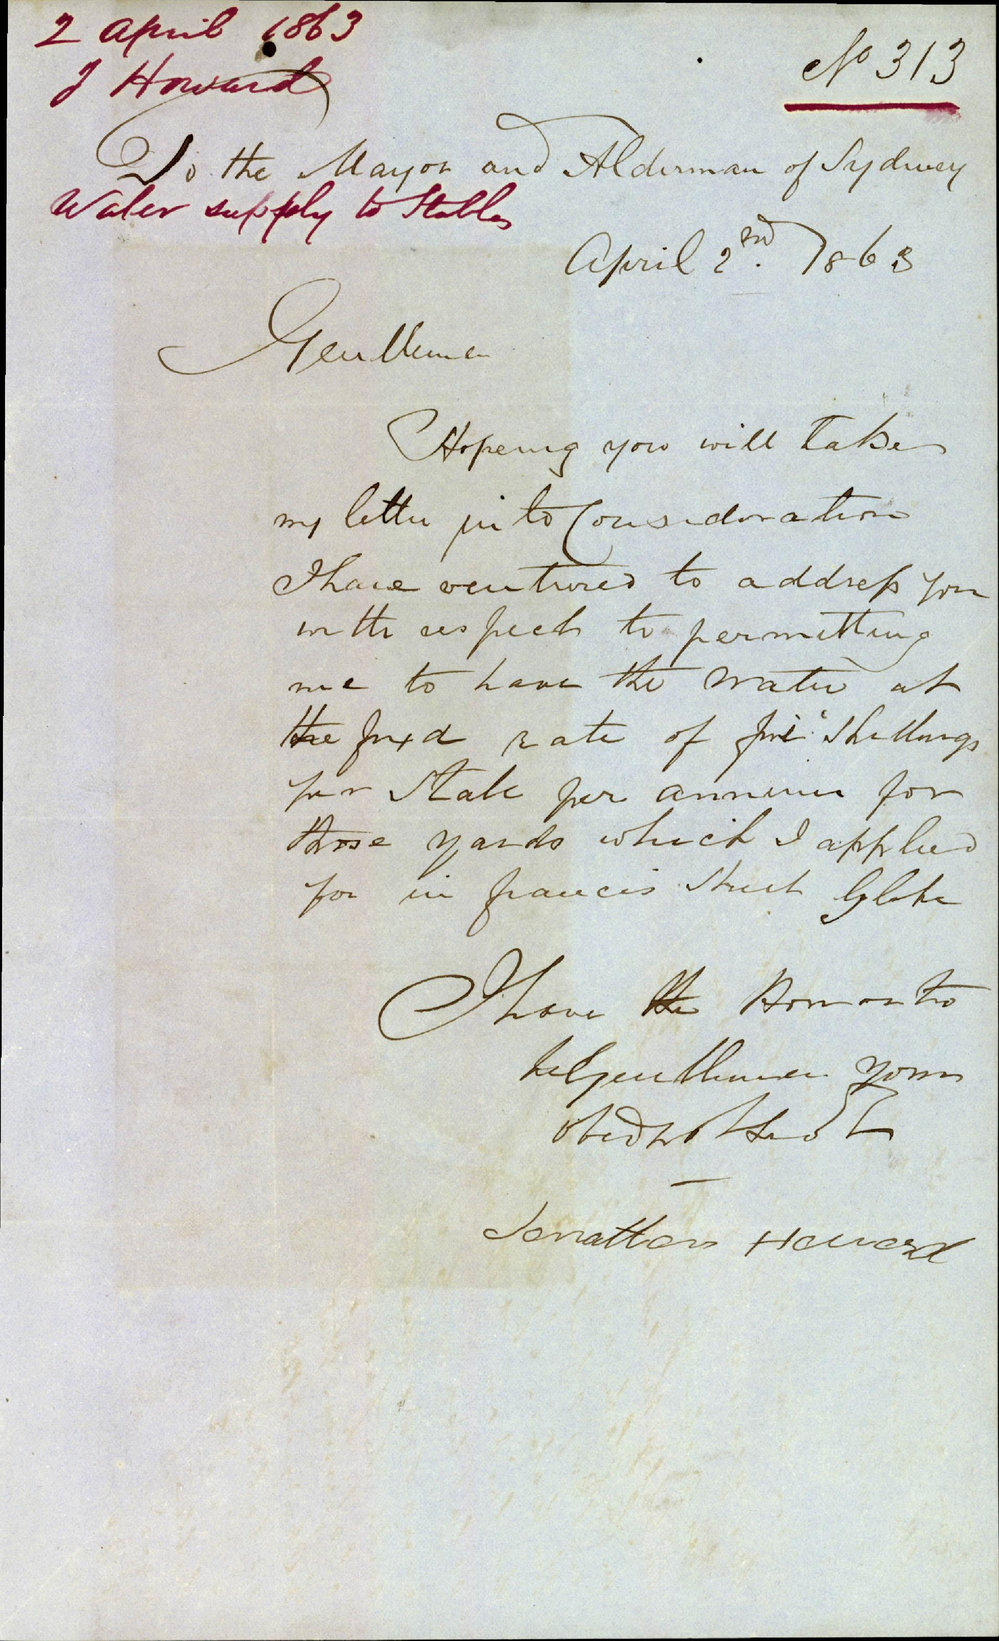 2 April 1863
J Howard
No 313
To the Mayor and Alderman of Sydney
Water supply to Stables
April 2nd. 1863
Gentlemen
Hopeing you will take
my letter into Consideration
I have ventured to address you
with respect to permitting
me to have the water at
the fixd rate of five Shillings
per Stall per annum for
those yards which I applied
for in francis Street Glebe
I have the Honor to
be Gentlemen yours
obed
Jonathan Howard